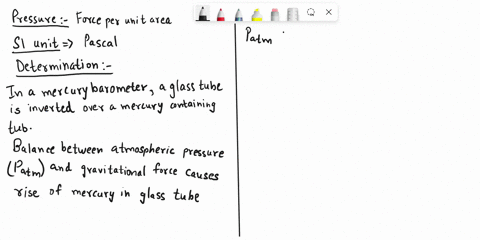 Pressure:- Force per unit area
SI unit => Pascal
Determination:-
In a mercury barometer, a glass tube
is inverted over a mercury containing
tub.
Balance between atmospheric pressure
(Patm) and gravitational force causes
rise of mercury in glass tube
Patm